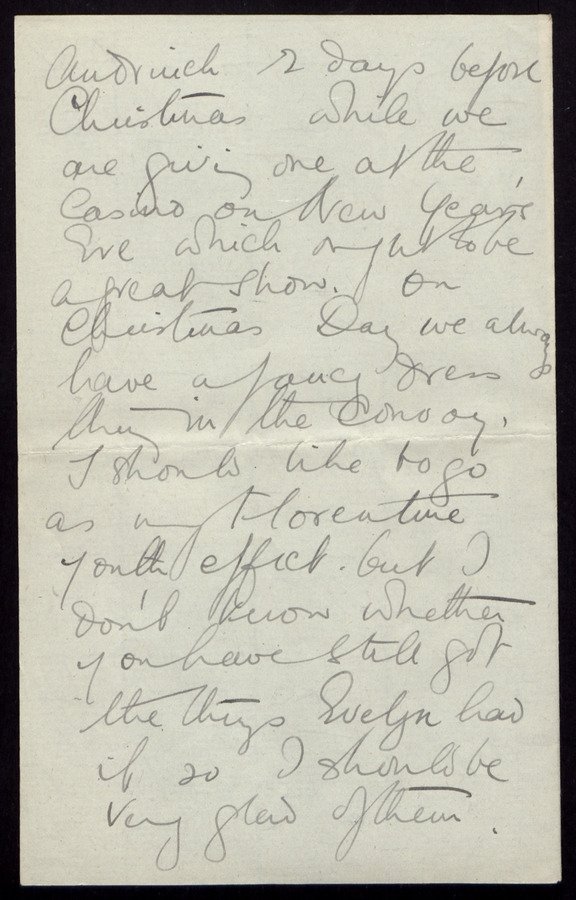 2 days before
Christmas while we
are giving one at the
Casino on New Year's
Eve which ought to be
a great show. On
Christmas Day we always
have a fancy dress
thing in the Convoy.
I should like to go
as my Florentine
youth effect. but I
don't know whether
you have still got
the things Evelyn had
if so I should be
very glad of them.